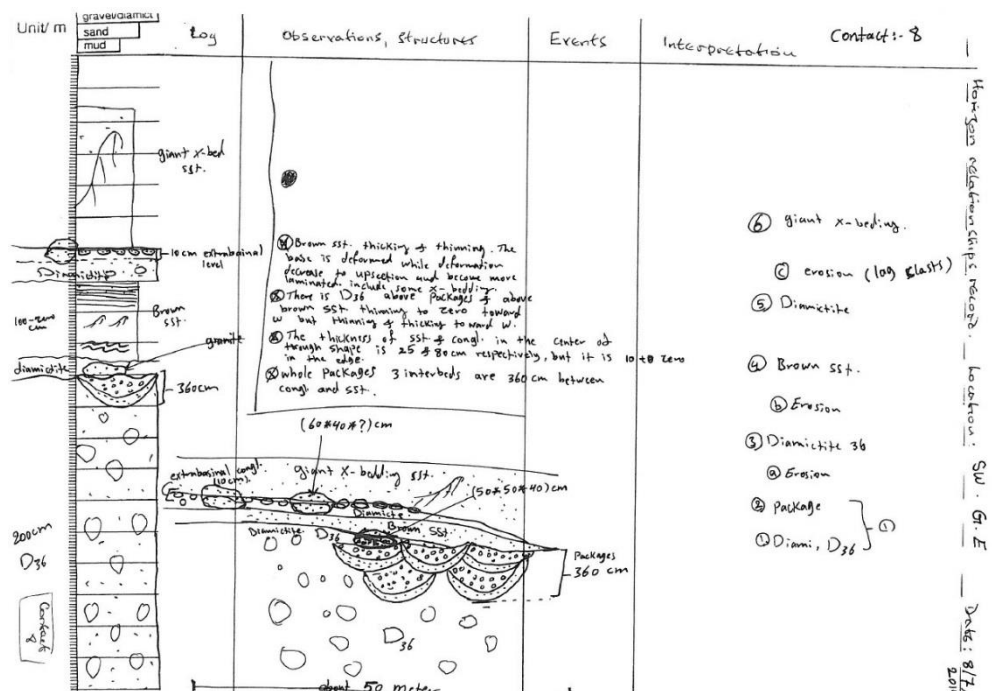 Unit/ m
gravel/diamict
sand
mud
Log
Observations, structures
Events
Interpretation
Contact:- 8
giant x-bed
sst.
10cm extrabasinal
level
Diamictite
100-zero
cm
Brown
sst.
granite
diamictite
360cm
200cm
D36
Contact
8
Brown sst. thicking & thinning. The
base is deformed while deformation
decrease to upsection and become more
laminated. include some x-bedding.
There is D36 above packages & above
brown sst thinning to zero toward
W but thinning & thicking toward W.
The thickness of sst & congl. in the center of
through shape is 25 & 80 cm respectively, but it is 10 to zero
in the edge.
whole packages 3 interbeds are 360 cm between
congl. and sst.
(60*40*?)cm
extrabasinal congl.
(10cm)
giant X-bedding sst.
(50*50*40)cm
Diamicte
Brown sst
Diamictite D36
Packages
360 cm
D36
about 50 meter
6 giant x-beding.
c erosion (lag clasts)
5 Diamictite
4 Brown sst.
b Erosion
3 Diamictite 36
a Erosion
2 Package
1 Diami, D36
1
Horizon relationships record. Location: SW. G. E Date: 8/7
201